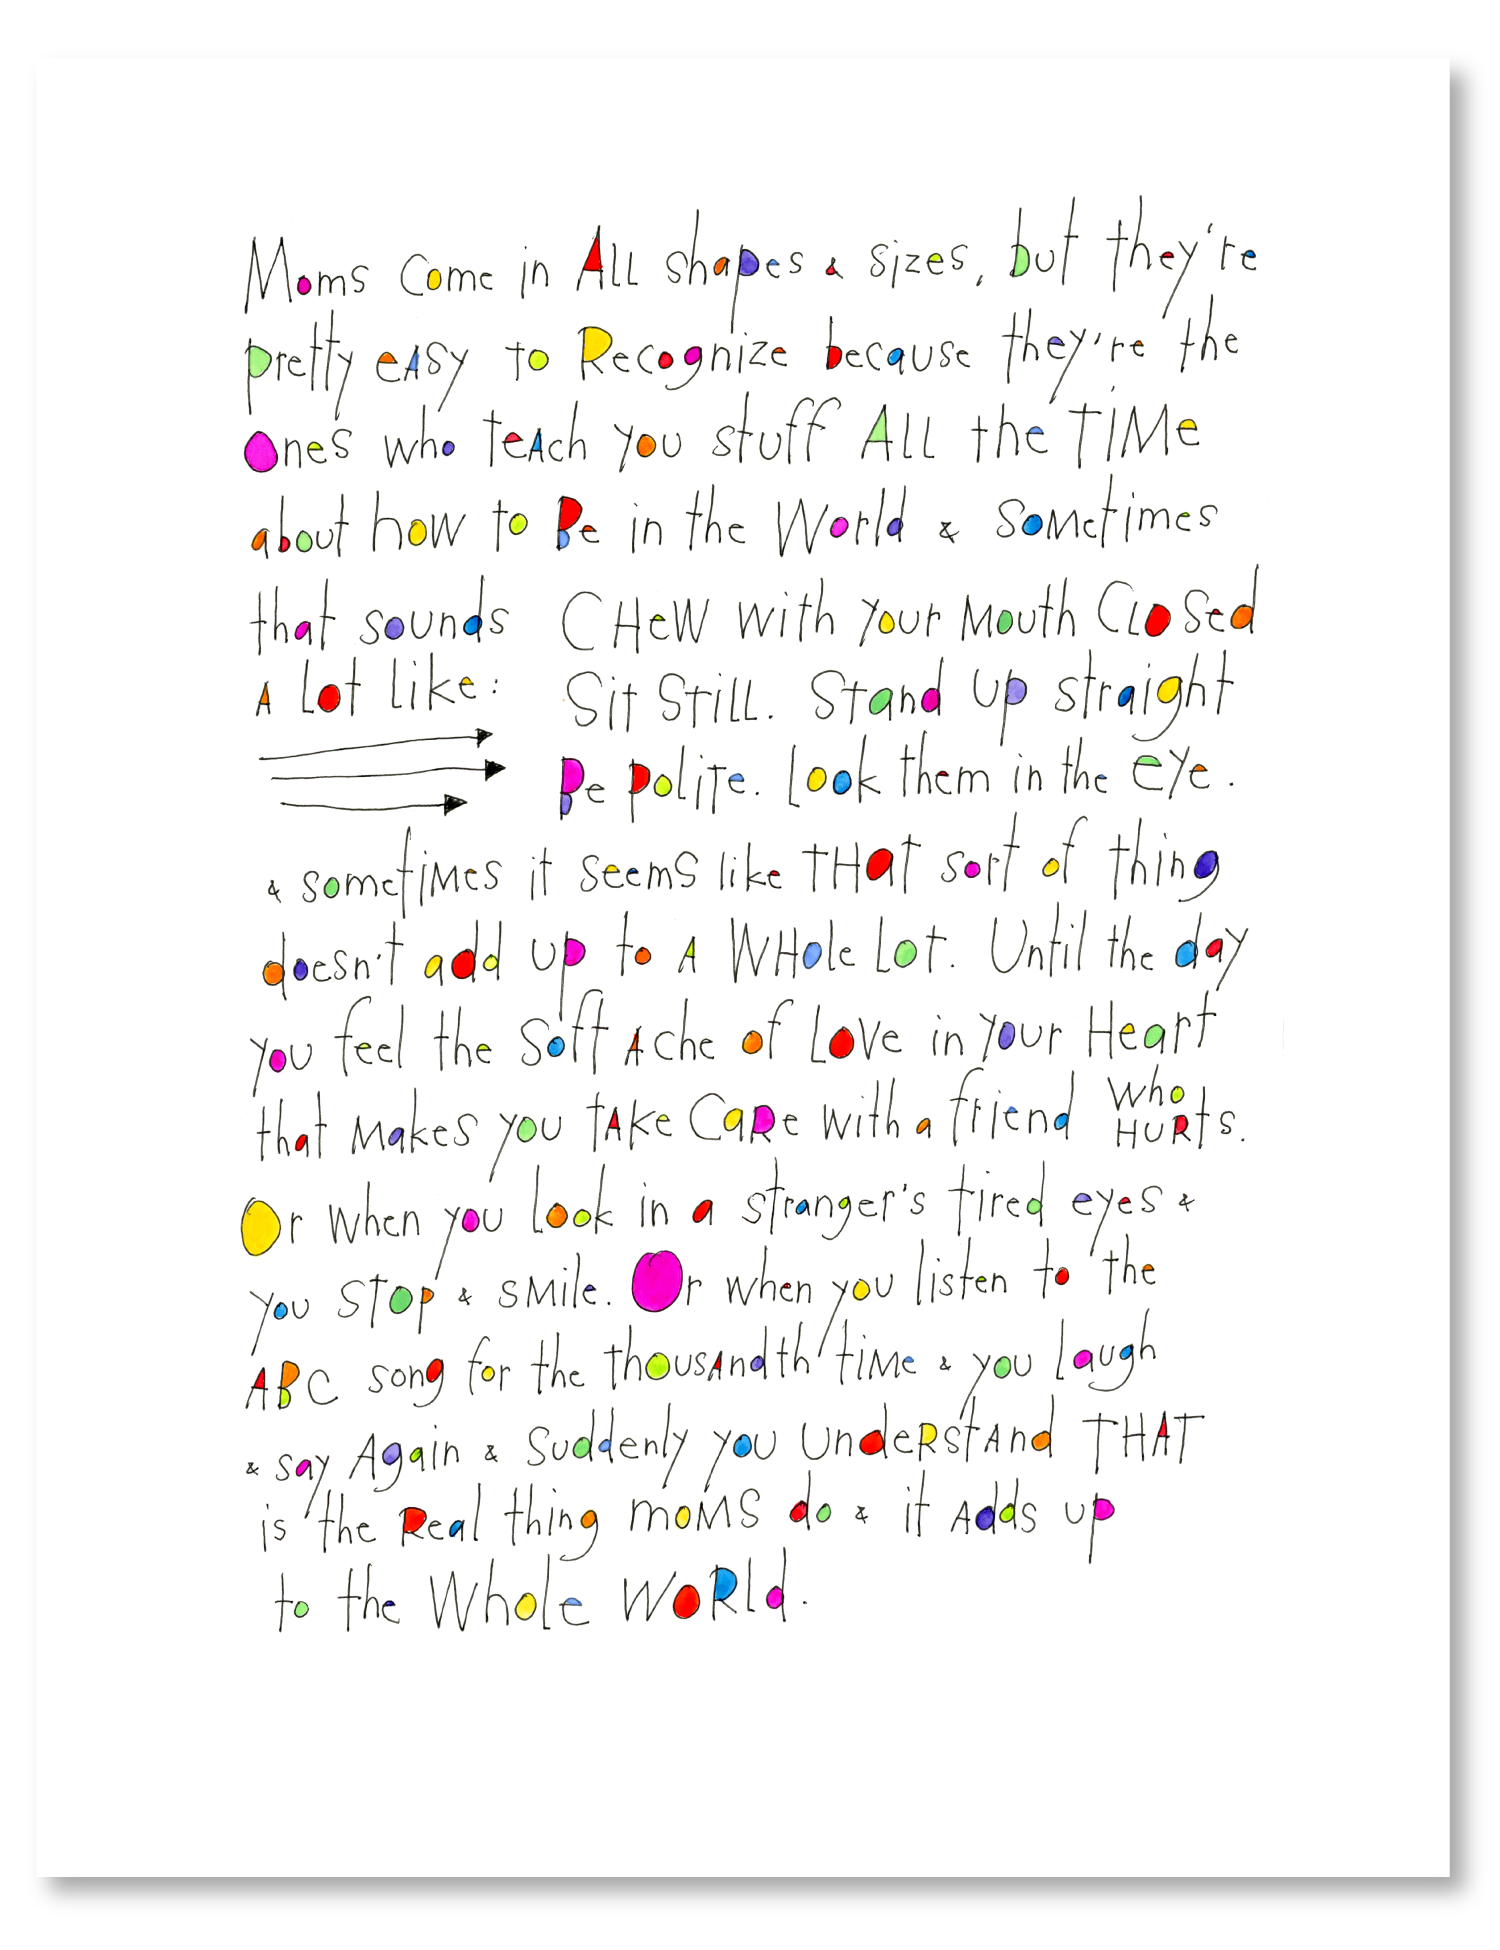 Moms Come in ALL shapes & sizes, but they're
pretty eASy to Recognize because they're the
Ones who teAch you stuff ALL the TiMe
about how to Be in the World & SoMetimes
that sounds
A Lot like:
CHeW with your Mouth CLoSed
Sit StiLL. Stand up straight
Be polite. Look them in the eye.
& sometiMes it seemS like THAt sort of thing
doesn't add up to A WHole Lot. Until the day
you feel the Soft Ache of Love in your Heart
that MakeS you tAke CaRe with a friend WHo HURts.
Or when you look in a stranger's tired eyes &
you Stop & SMile. Or when you listen to the
ABC song for the thousAndth tiMe & you laugh
& say Again & Suddenly you UndeRstAnd THAT
is the Real thing moMS do & it Adds up
to the Whole WoRld.